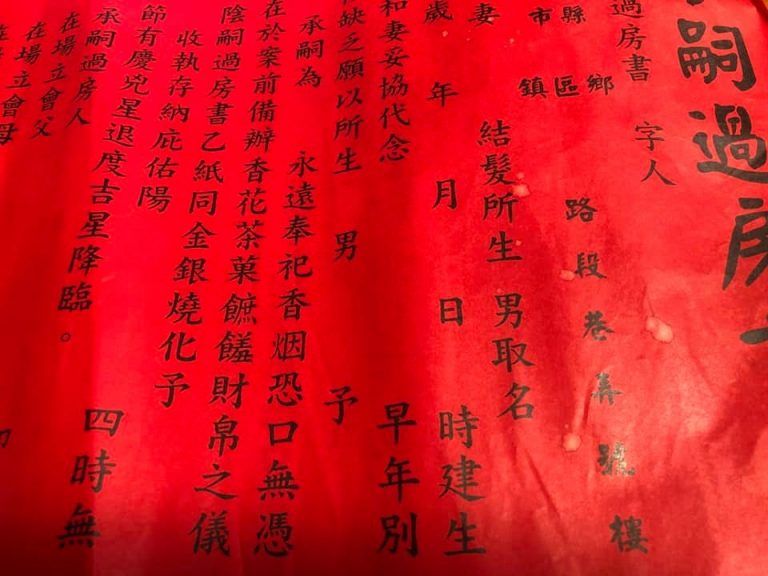 嗣過房
過房書 字人
縣市 鄉區鎮 路段巷弄號樓
妻 結髮所生 男取名
歲 年 月 日 時建生
和妻妥協代念 早年別
缺乏願以所生 男 予
承嗣為 永遠奉祀香烟恐口無憑
在於案前備辦香花茶菓饈財帛之儀
陰嗣過房書乙紙同金銀燒化予
收執存納庇佑陽 四時無
節有慶兇星退度吉星降臨。
承嗣過房人
在場立會父
在場立會母